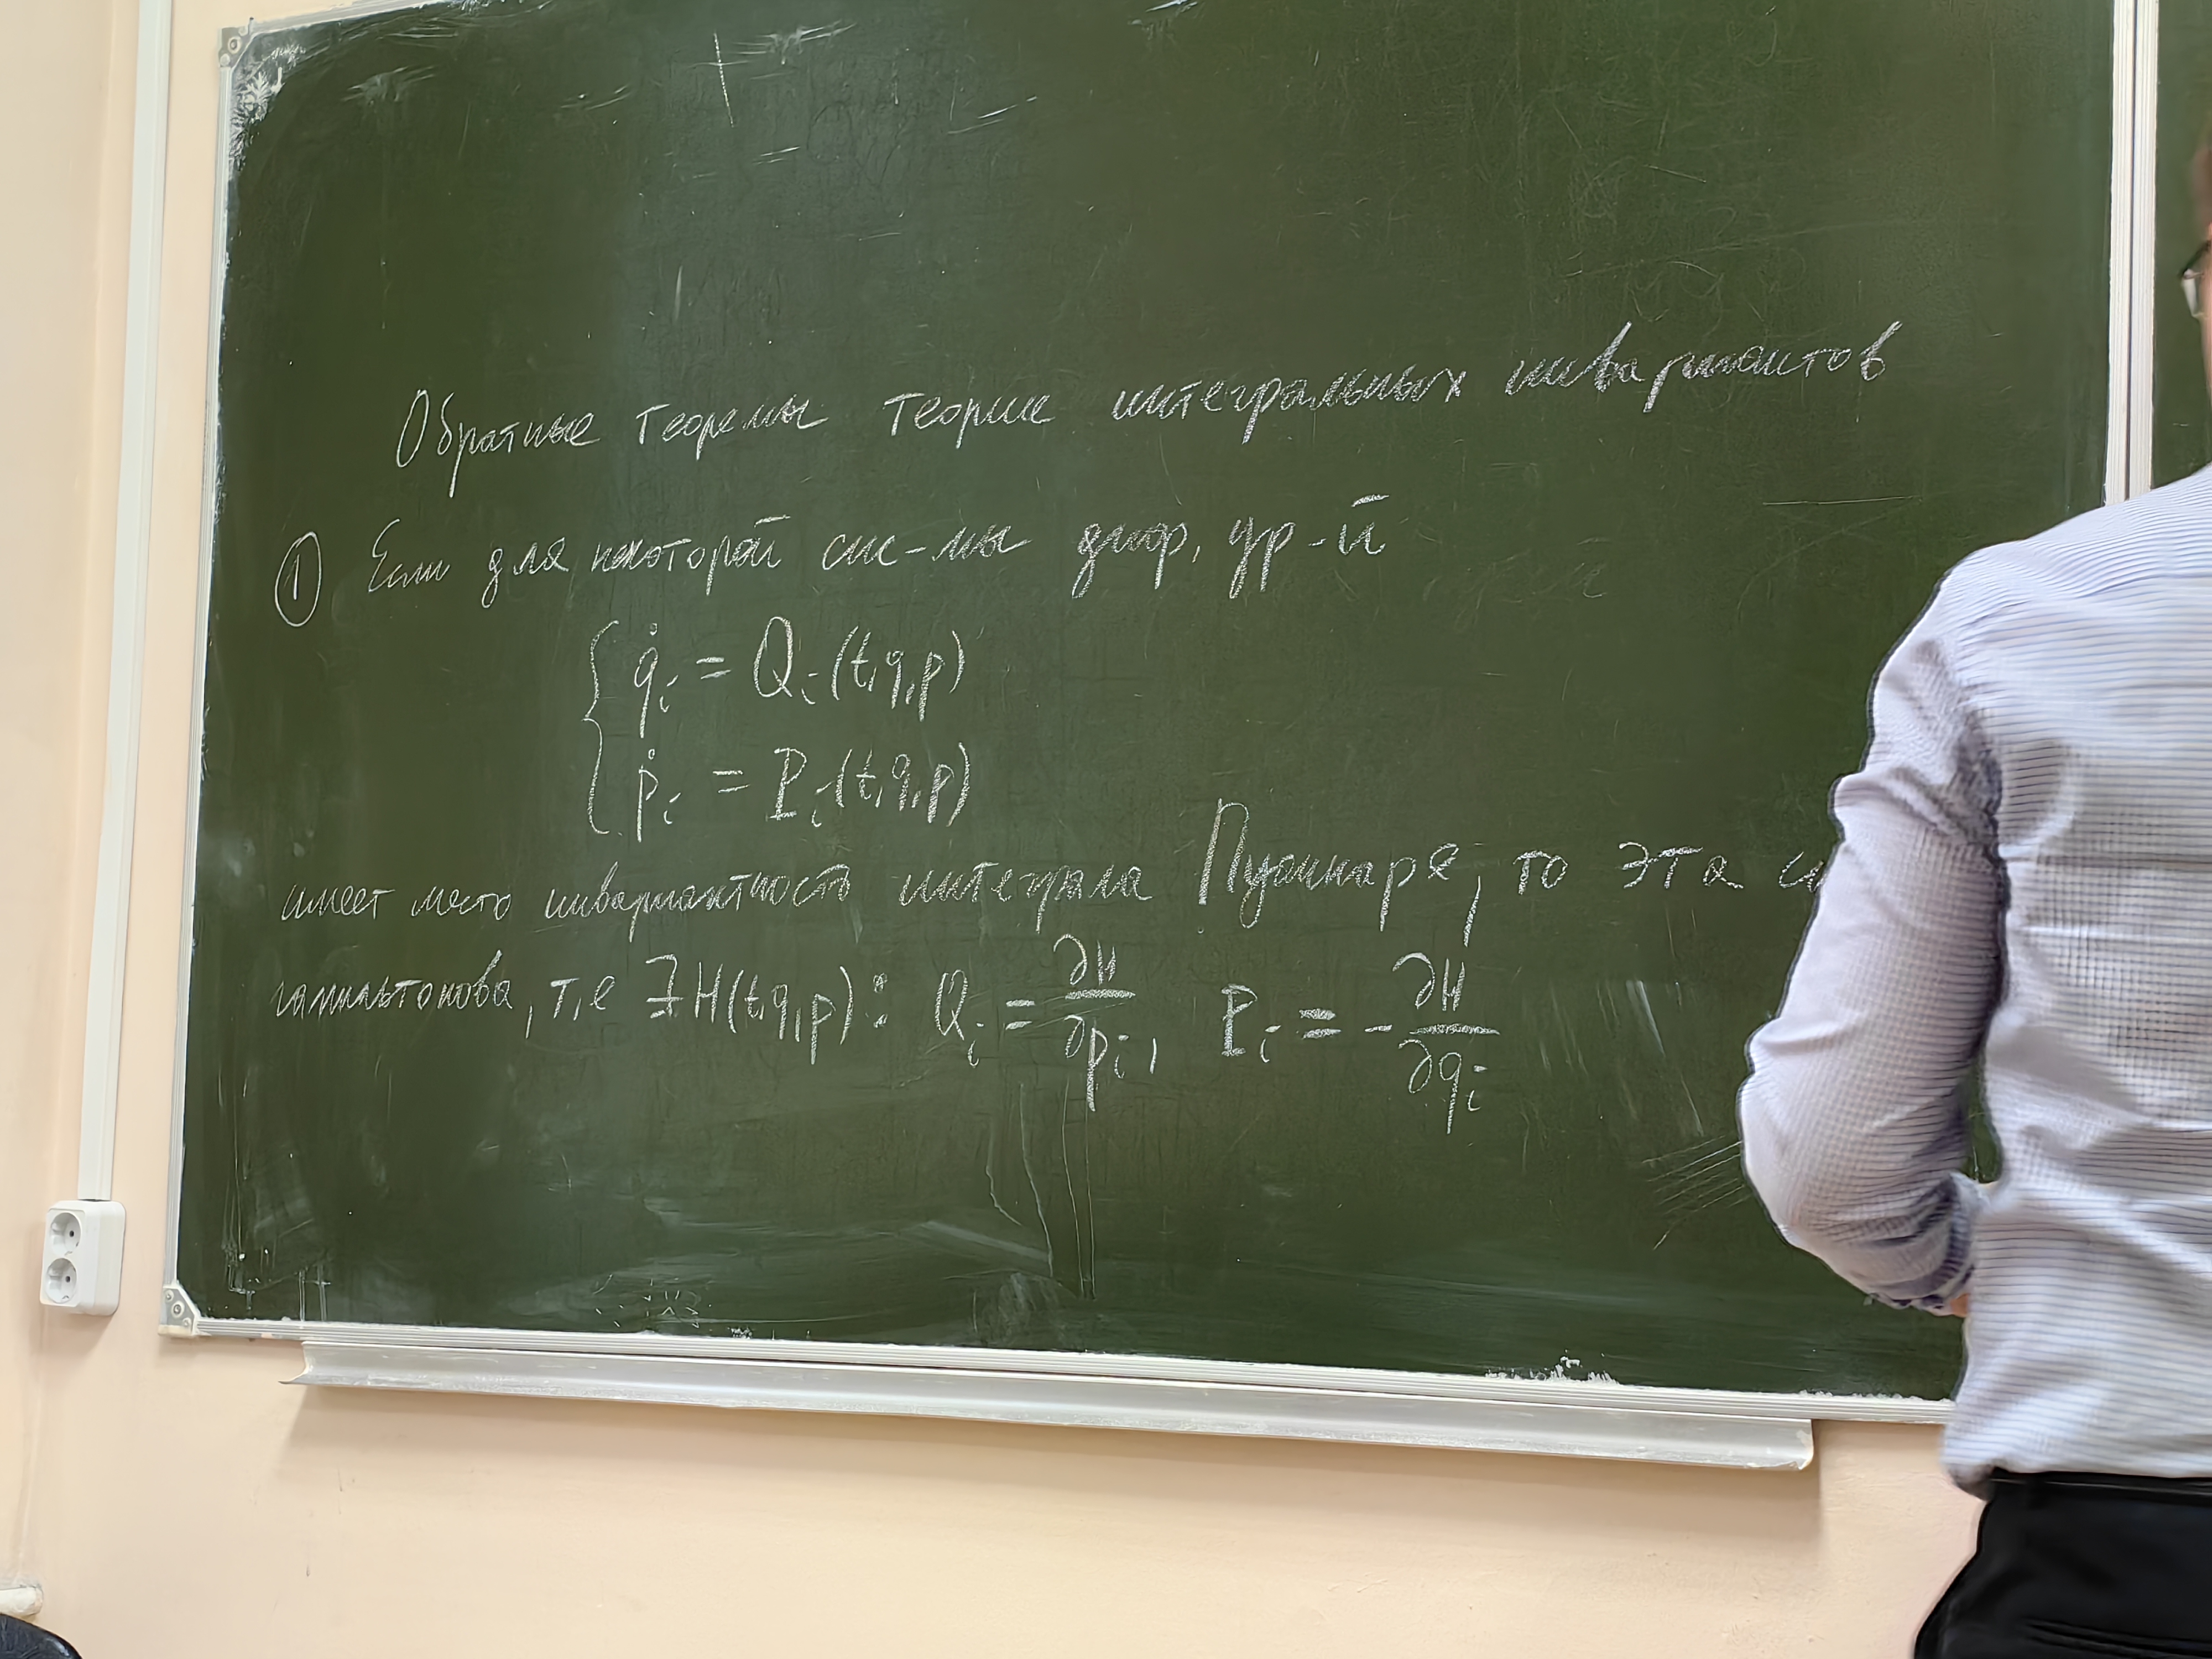 Обратные теоремы теории интегральных инвариантов
① Если для некоторой сис-мы диф. ур-й
{ q̇ᵢ = Qᵢ(t,q,p)
ṗᵢ = Pᵢ(t,q,p)
имеет место инвариантность интеграла Пуанкаре, то эта
гамильтонова, т.е ∃ H(t,q,p): Qᵢ = ∂H/∂pᵢ, Pᵢ = -∂H/∂qᵢ